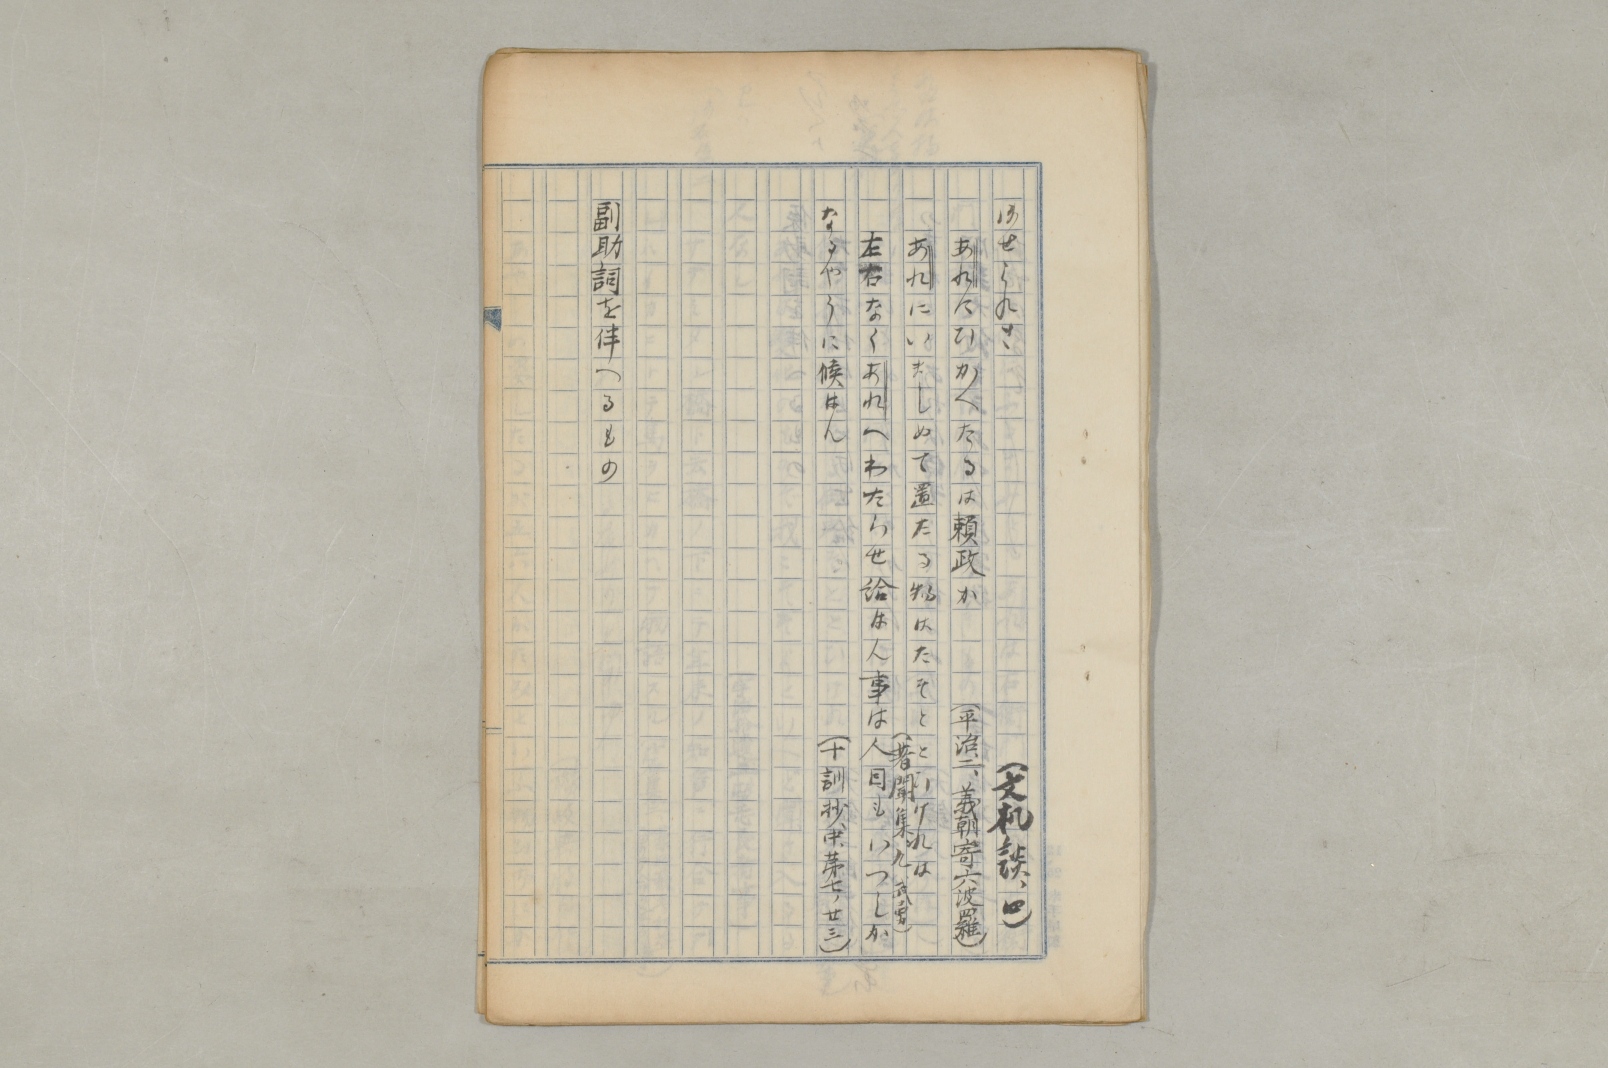 はせられき
(文机談、四)
あれにひかへたるは頼政か
(平治二、義朝寄六波羅)
あれにいましめて置たる物はたそととひけれは
(著聞集九、武勇)
左右なくあれへわたらせ給はん事は人目もいつしか
なるやうに候はん
(十訓抄、中、第七ノ廿三)
副助詞を伴へるもの